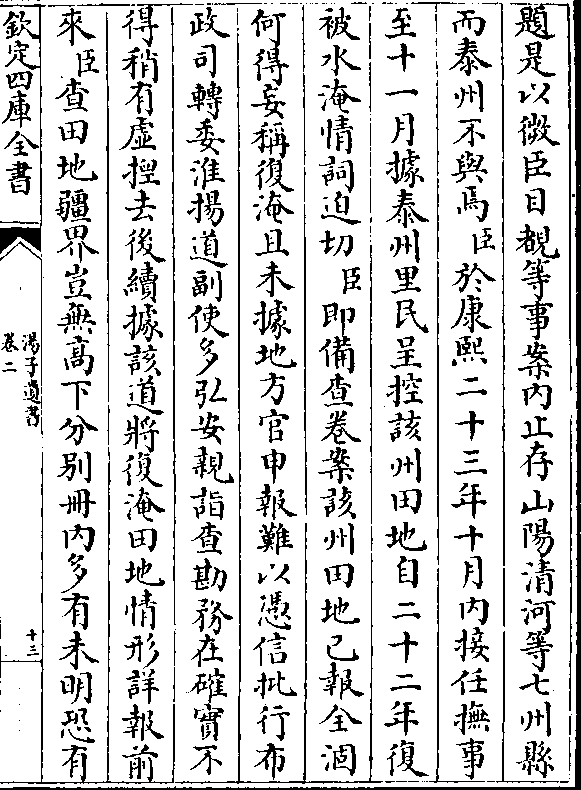 題是以微臣目覩等事案内止存山陽清河等七州縣
而泰州不與焉臣於康熙二十三年十月内接任撫事
至十一月據泰州里民呈控該州田地自二十二年復
被水淹情詞迫切臣即備查卷案該州田地已報全涸
何得妄稱復淹且未據地方官申報難以憑信批行布
政司轉委淮揚道副使多弘安親詣查勘務在確實不
得稍有虛揑去後續據該道將復淹田地情形詳報前
來臣查田地疆界豈無高下分别冊内多有未明恐有
欽定四庫全書
湯子遺書
卷二
十三